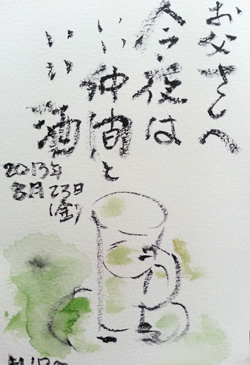 お父さんへ
今夜は
いい仲間と
いい酒
2013年
8月23日
(金)